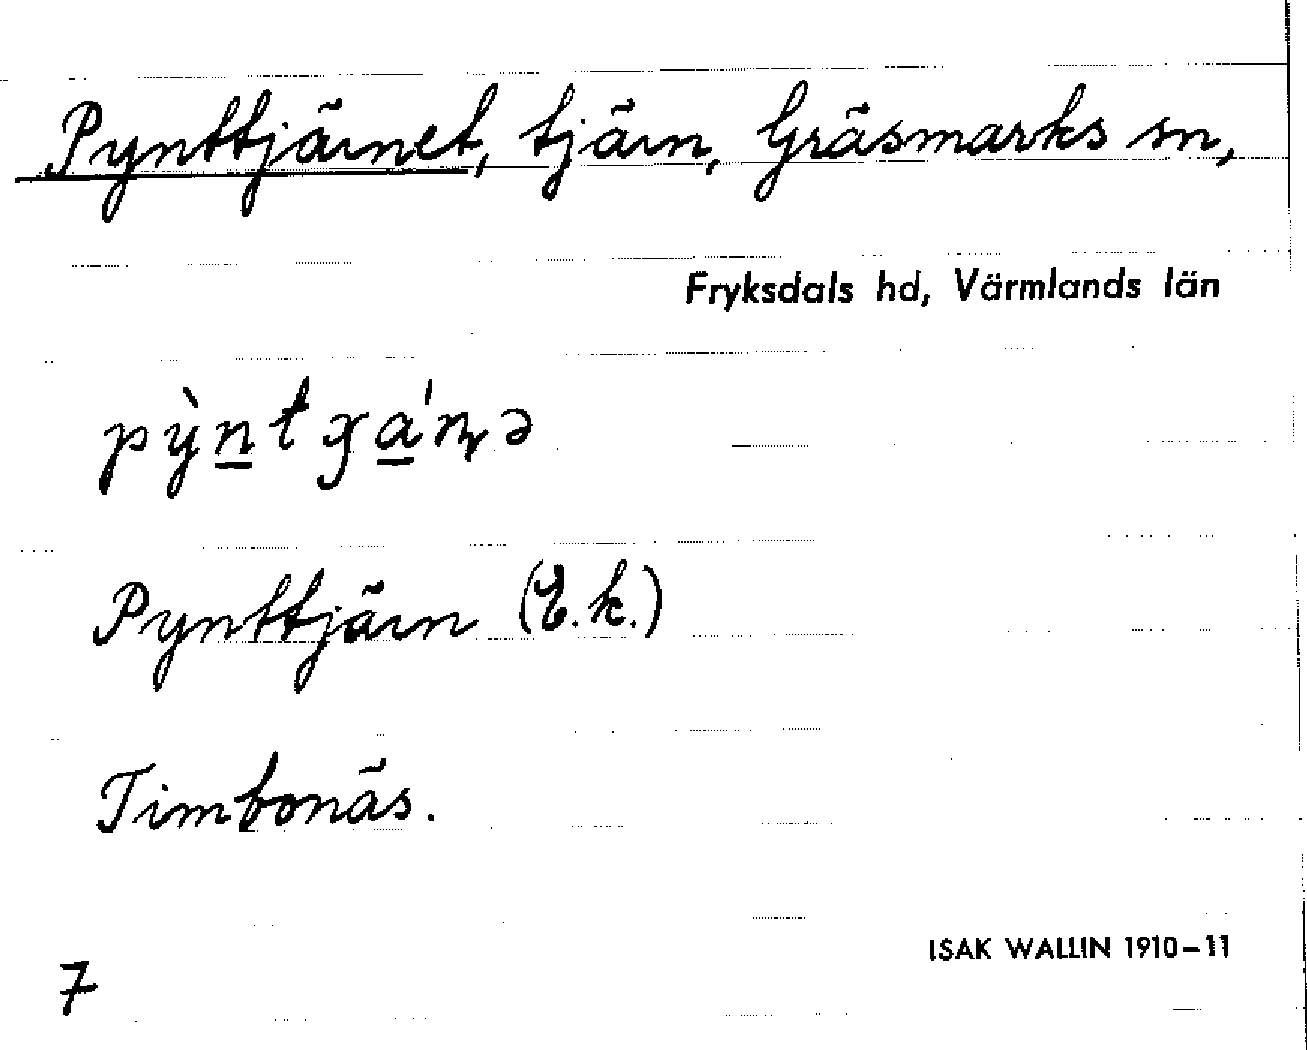 Pynttjärnet, tjärn, Gräsmarks sn,
Fryksdals hd, Värmlands län
Pynttjärn (E.k.)
Timbonäs.
ISAK WALLIN 1910–11
7